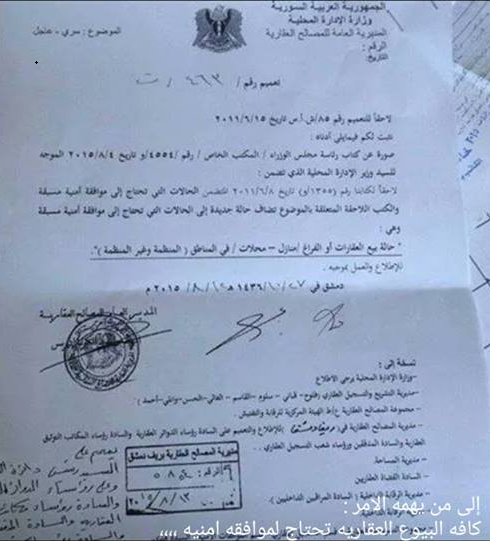 الجمهورية العربية السورية
وزارة الإدارة المحلية
المديرية العامة للمصالح العقارية
الرقم :
التاريخ:
الموضوع : سري - عاجل
تعميم رقم / ٤٦٣ / ت
لاحقاً للتعميم رقم ٨٥/ش.أ.س تاريخ ٢٠١١/٦/١٥
نثبت لكم فيمايلي أدناه :
صورة عن كتاب رئاسة مجلس الوزراء / المكتب الخاص / رقم /٤٥٥٤/و تاريخ ٢٠١٥/٨/٤ الموجه
للسيد وزير الإدارة المحلية الذي تضمن :
لاحقاً لكتابنا رقم (١٣٥٥/و) تاريخ ٢٠١١/٦/٨ المتضمن الحالات التي تحتاج إلى موافقة أمنية مسبقة
والكتب اللاحقة المتعلقة بالموضوع تضاف حالة جديدة إلى الحالات التي تحتاج إلى موافقة أمنية مسبقة
وهي :
" حالة بيع العقارات أو الفراغ /منازل – محلات / في المناطق ( المنظمة وغير المنظمة )".
للإطلاع والعمل بموجبه .
دمشق في ٢٧/١٠/١٤٣٦ هـ / ٨ / ٢٠١٥ م
نسخة إلى :
-وزارة الإدارة المحلية يرجى الاطلاع
-مديرية التشريع والتسجيل العقاري
- مجموعة المصالح العقارية ع/ط الهيئة المركزية للرقابة والتفتيش .
- مديرية المصالح العقارية في / ريف دمشق / للإطلاع والتعميم على السادة رؤساء الدوائر العقارية والسادة رؤساء المكاتب التوثيق
العقارية والسادة المدققين ورؤساء شعب التسجيل العقاري .
- مديرية المساحة.
- السادة القضاة العقاريين
- مديرية الرقابة الداخلية ( السادة المراقبين الداخليين ).
مديرية المصالح العقارية بريف دمشق
الرقم:
٢٠١٥/٨/١٣
إلى من يهمه الامر :
كافه البيوع العقاريه تحتاج لموافقه امنيه ,,,,